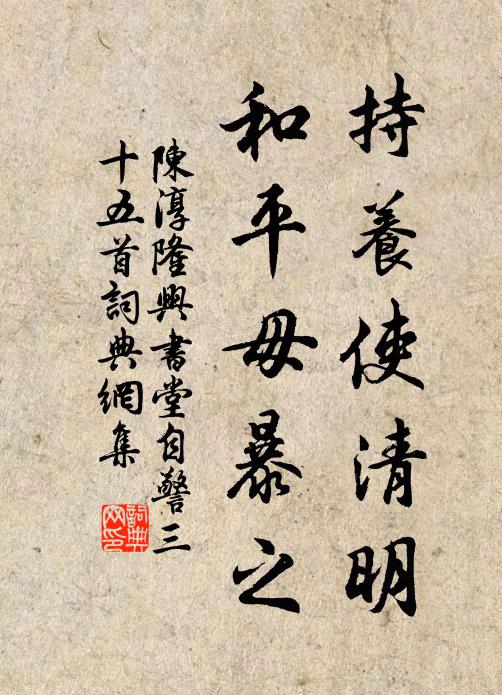 持養使清明
和平毋暴之
陳淳隆興書堂自警三
十五首詞典網集
詞典网印